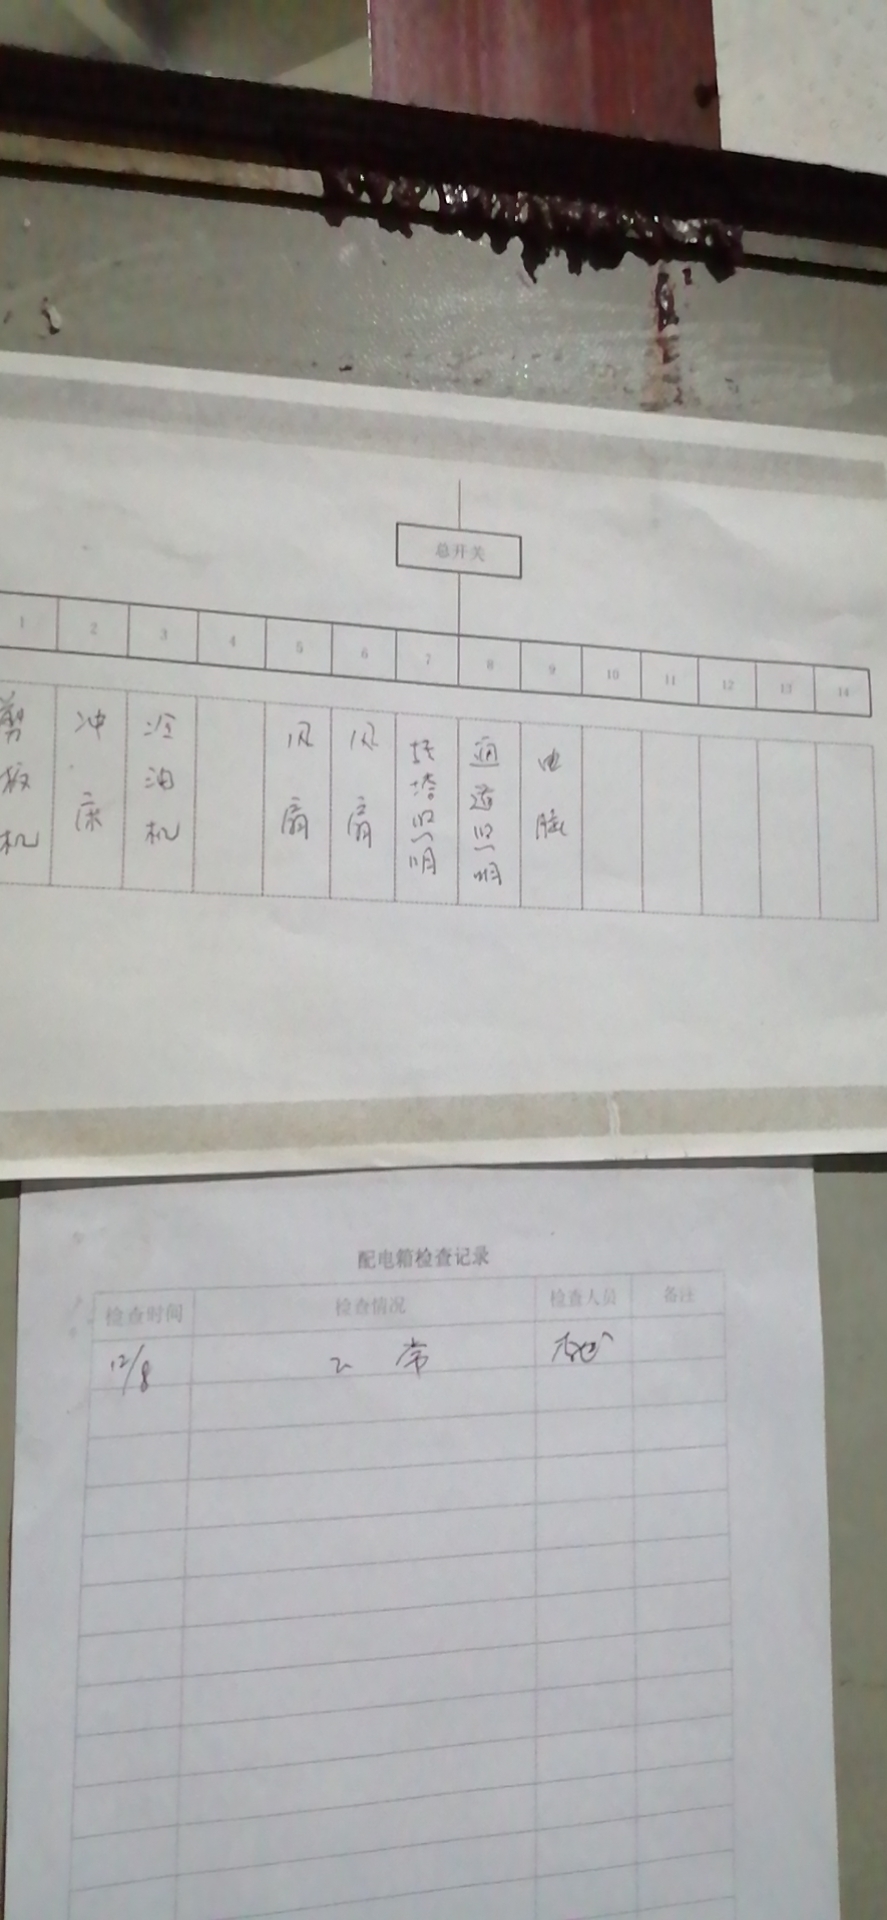 总开关
1 2 3 4 5 6 7 8 9 10 11 12 13 14
剪板机 冲床 油机 风扇 风扇 塔照明 通道照明 电脑
配电箱检查记录
检查时间 检查情况 检查人员 备注
12/8 正常